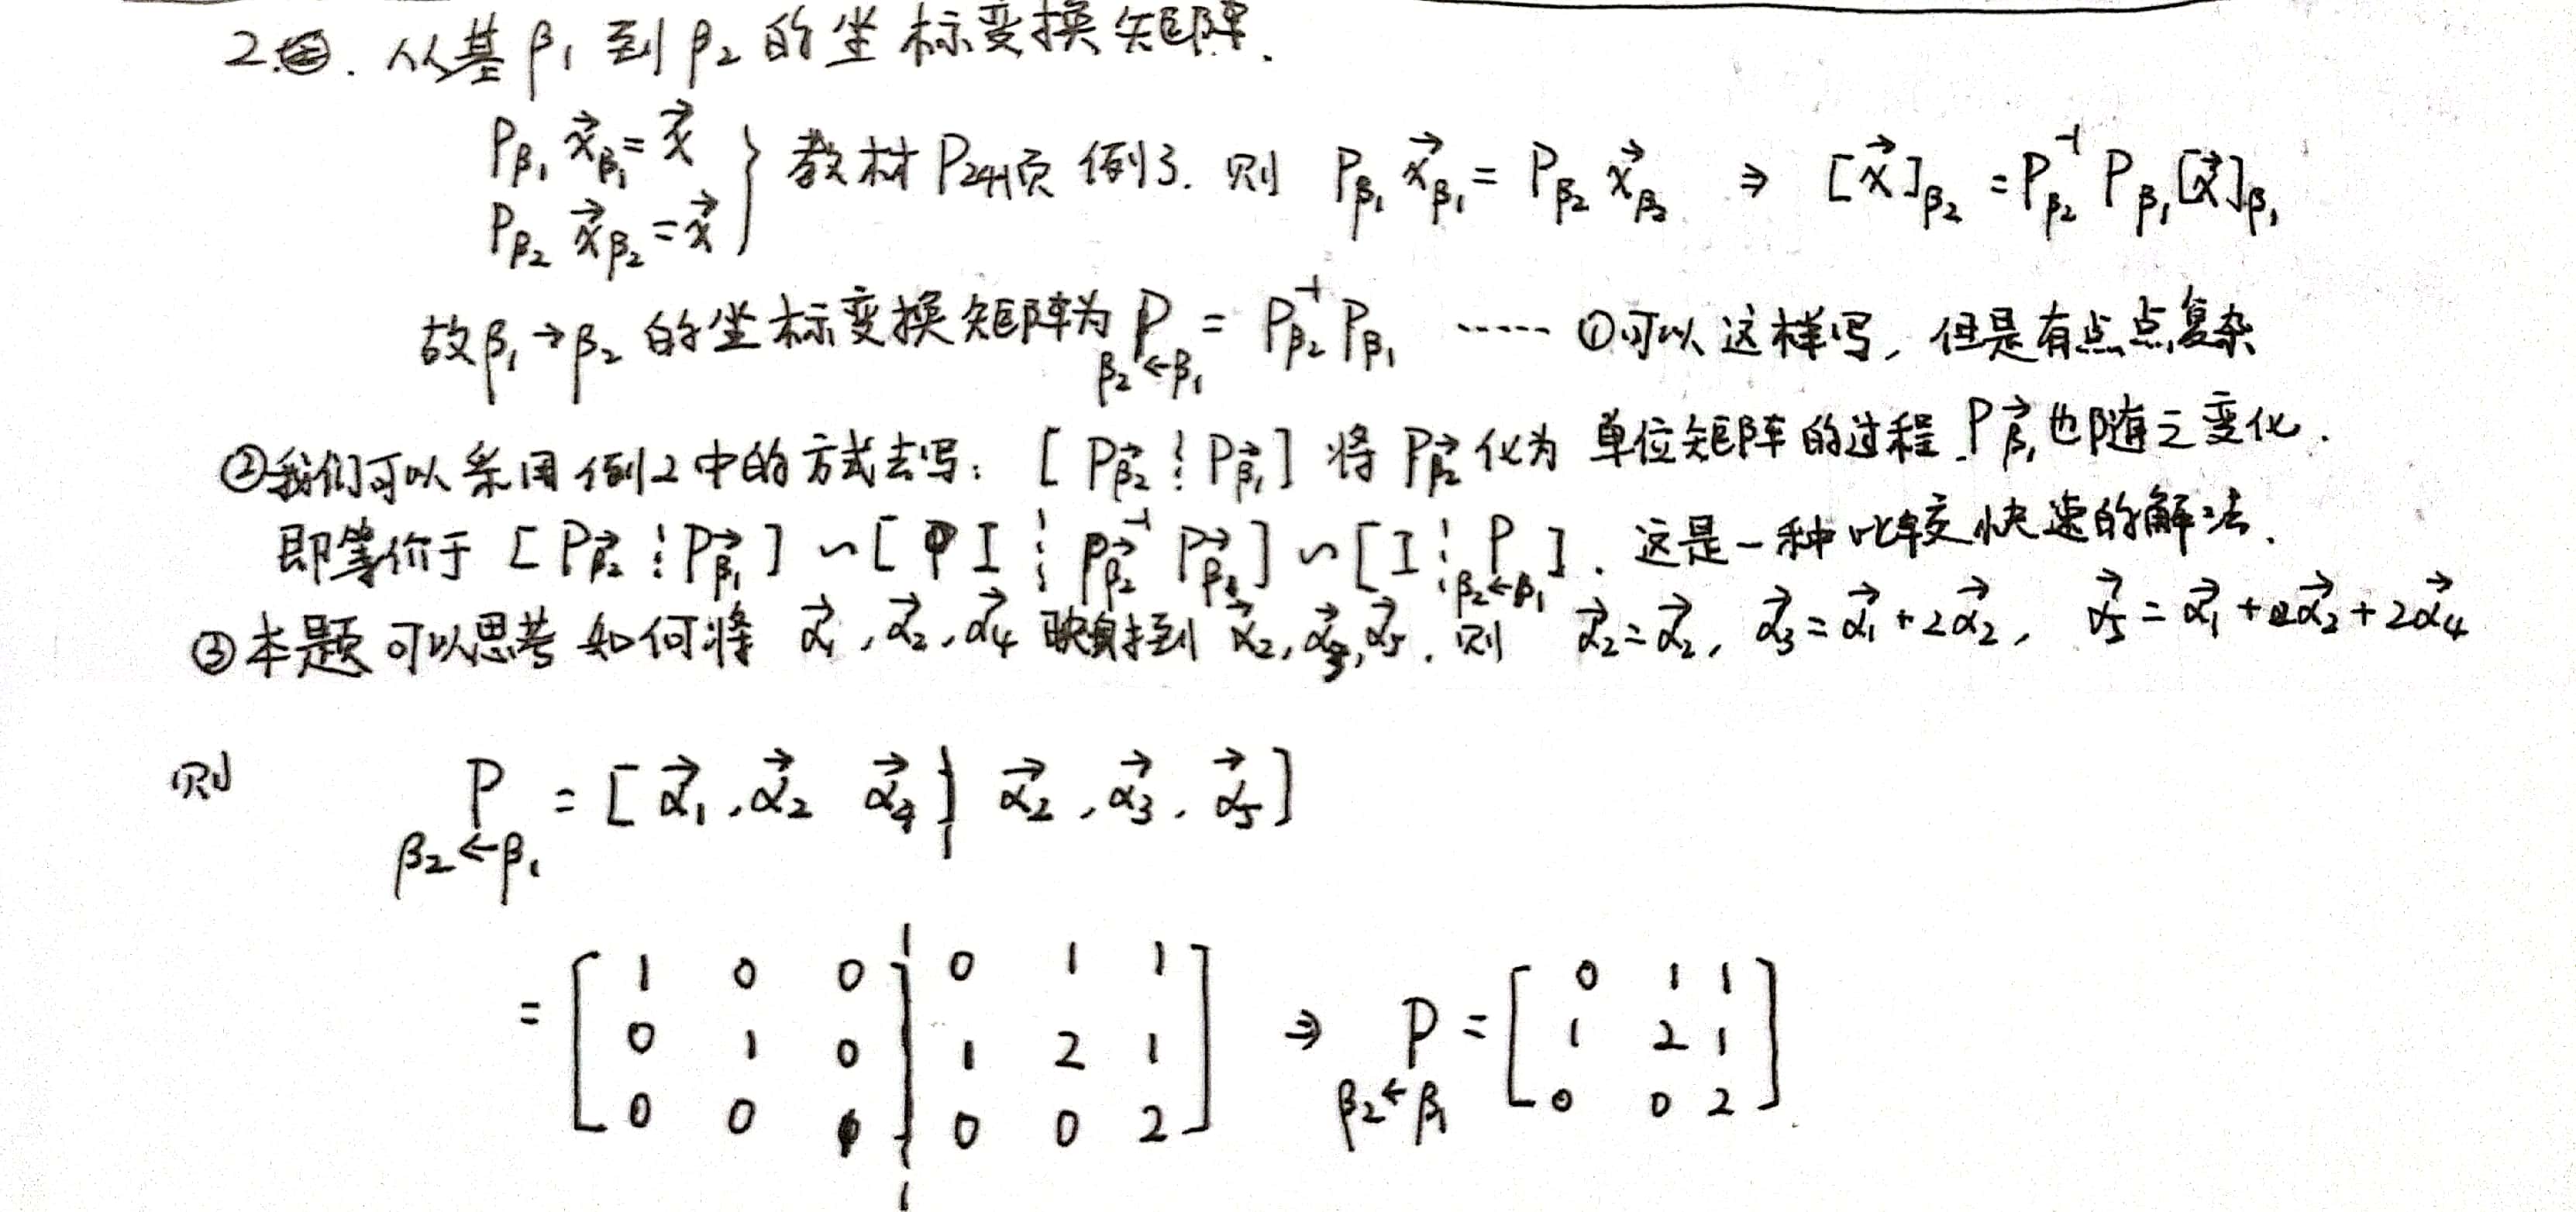 2.④. 从基 β₁ 到 β₂ 的坐标变换矩阵.
P_β₁ x⃗_β₁ = x⃗
P_β₂ x⃗_β₂ = x⃗ } 教材 P241页 例3. 则 P_β₁ x⃗_β₁ = P_β₂ x⃗_β₂ ⇒ [x⃗]_β₂ = P_β₂⁻¹ P_β₁ [x⃗]_β₁
故 β₁→β₂ 的坐标变换矩阵为 P_β₂←β₁ = P_β₂⁻¹ P_β₁ …… ①可以这样写, 但是有点点复杂
②我们可以采用例2中的方式去写: [P_β⃗₂ ⋮ P_β⃗₁] 将 P_β⃗₂ 化为 单位矩阵的过程. P_β⃗₁ 也随之变化.
即等价于 [P_β⃗₂ ⋮ P_β⃗₁] ∽ [I ⋮ P_β⃗₂⁻¹ P_β⃗₁] ∽ [I ⋮ P_β₂←β₁]. 这是一种比较快速的解法.
③本题可以思考如何将 α⃗₁, α⃗₂, α⃗₄ 映射到 α⃗₂, α⃗₃, α⃗₅. 则 α⃗₂ = α⃗₂, α⃗₃ = α⃗₁ + 2α⃗₂, α⃗₅ = α⃗₁ + α⃗₂ + 2α⃗₄
则 P_β₂←β₁ = [α⃗₁, α⃗₂ α⃗₄ ¦ α⃗₂, α⃗₃, α⃗₅]
= [ 1 0 0 ¦ 0 1 1 ] ⇒ P_β₂←β₁ = [ 0 1 1 ]
0 1 0 ¦ 1 2 1 1 2 1
0 0 ¦ 0 0 2 0 0 2